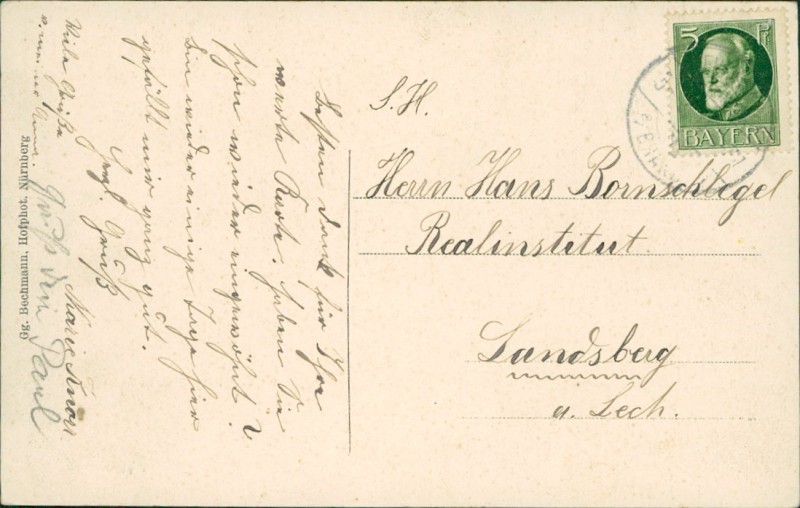 Besten Dank für Ihre
werte Karte. Haben Sie
schon wieder eingewöhnt?
Bin wieder einige Tage hier
gefällt mir ganz gut.
Hrzl. Gruß
Marie Knorr
Viele Grüße
Gruß von Paul
Gg. Bechmann, Hofphot. Nürnberg
5 Pf
BAYERN
S. H.
Herrn Hans Bornschlegel
Realinstitut
Landsberg
a. Lech.